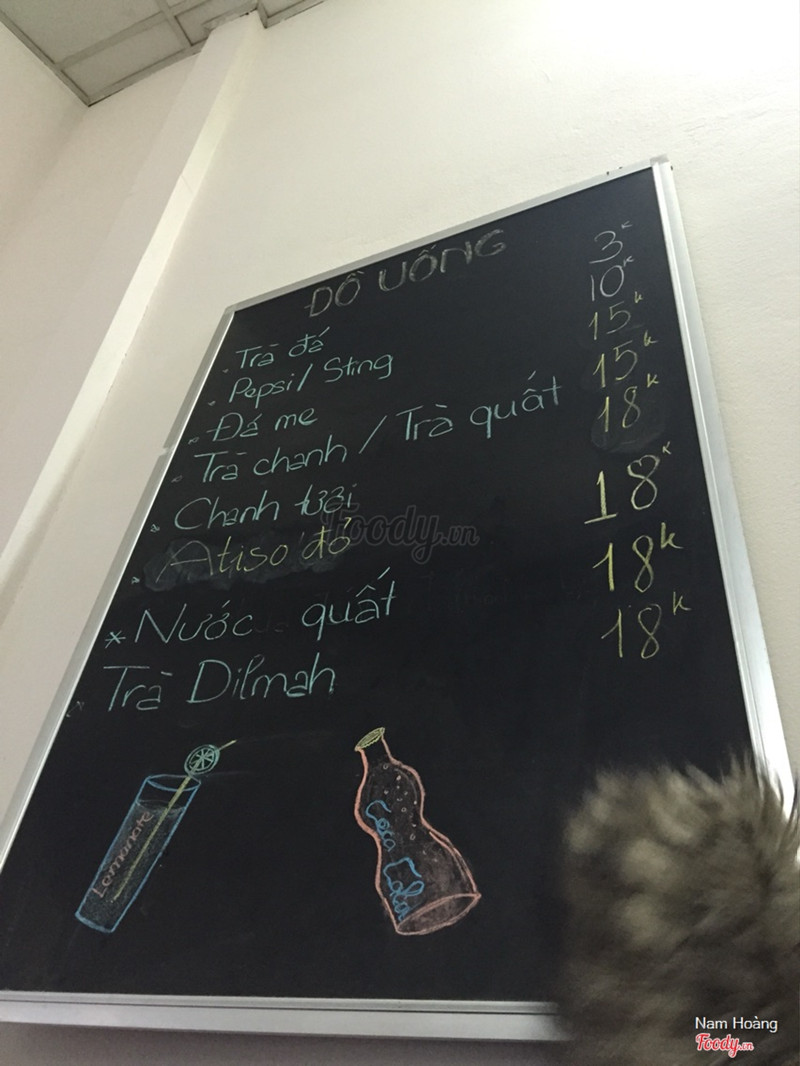 ĐỒ UỐNG
Trà đá 3k
Pepsi / Sting 10k
Đá me 15k
Trà chanh / Trà quất 15k
Chanh tươi 18k
Atiso đỏ 18k
* Nước quất 18k
Trà Dilmah 18k
Foody.vn
Lemonate
Coca Cola
Nam Hoàng
Foody.vn